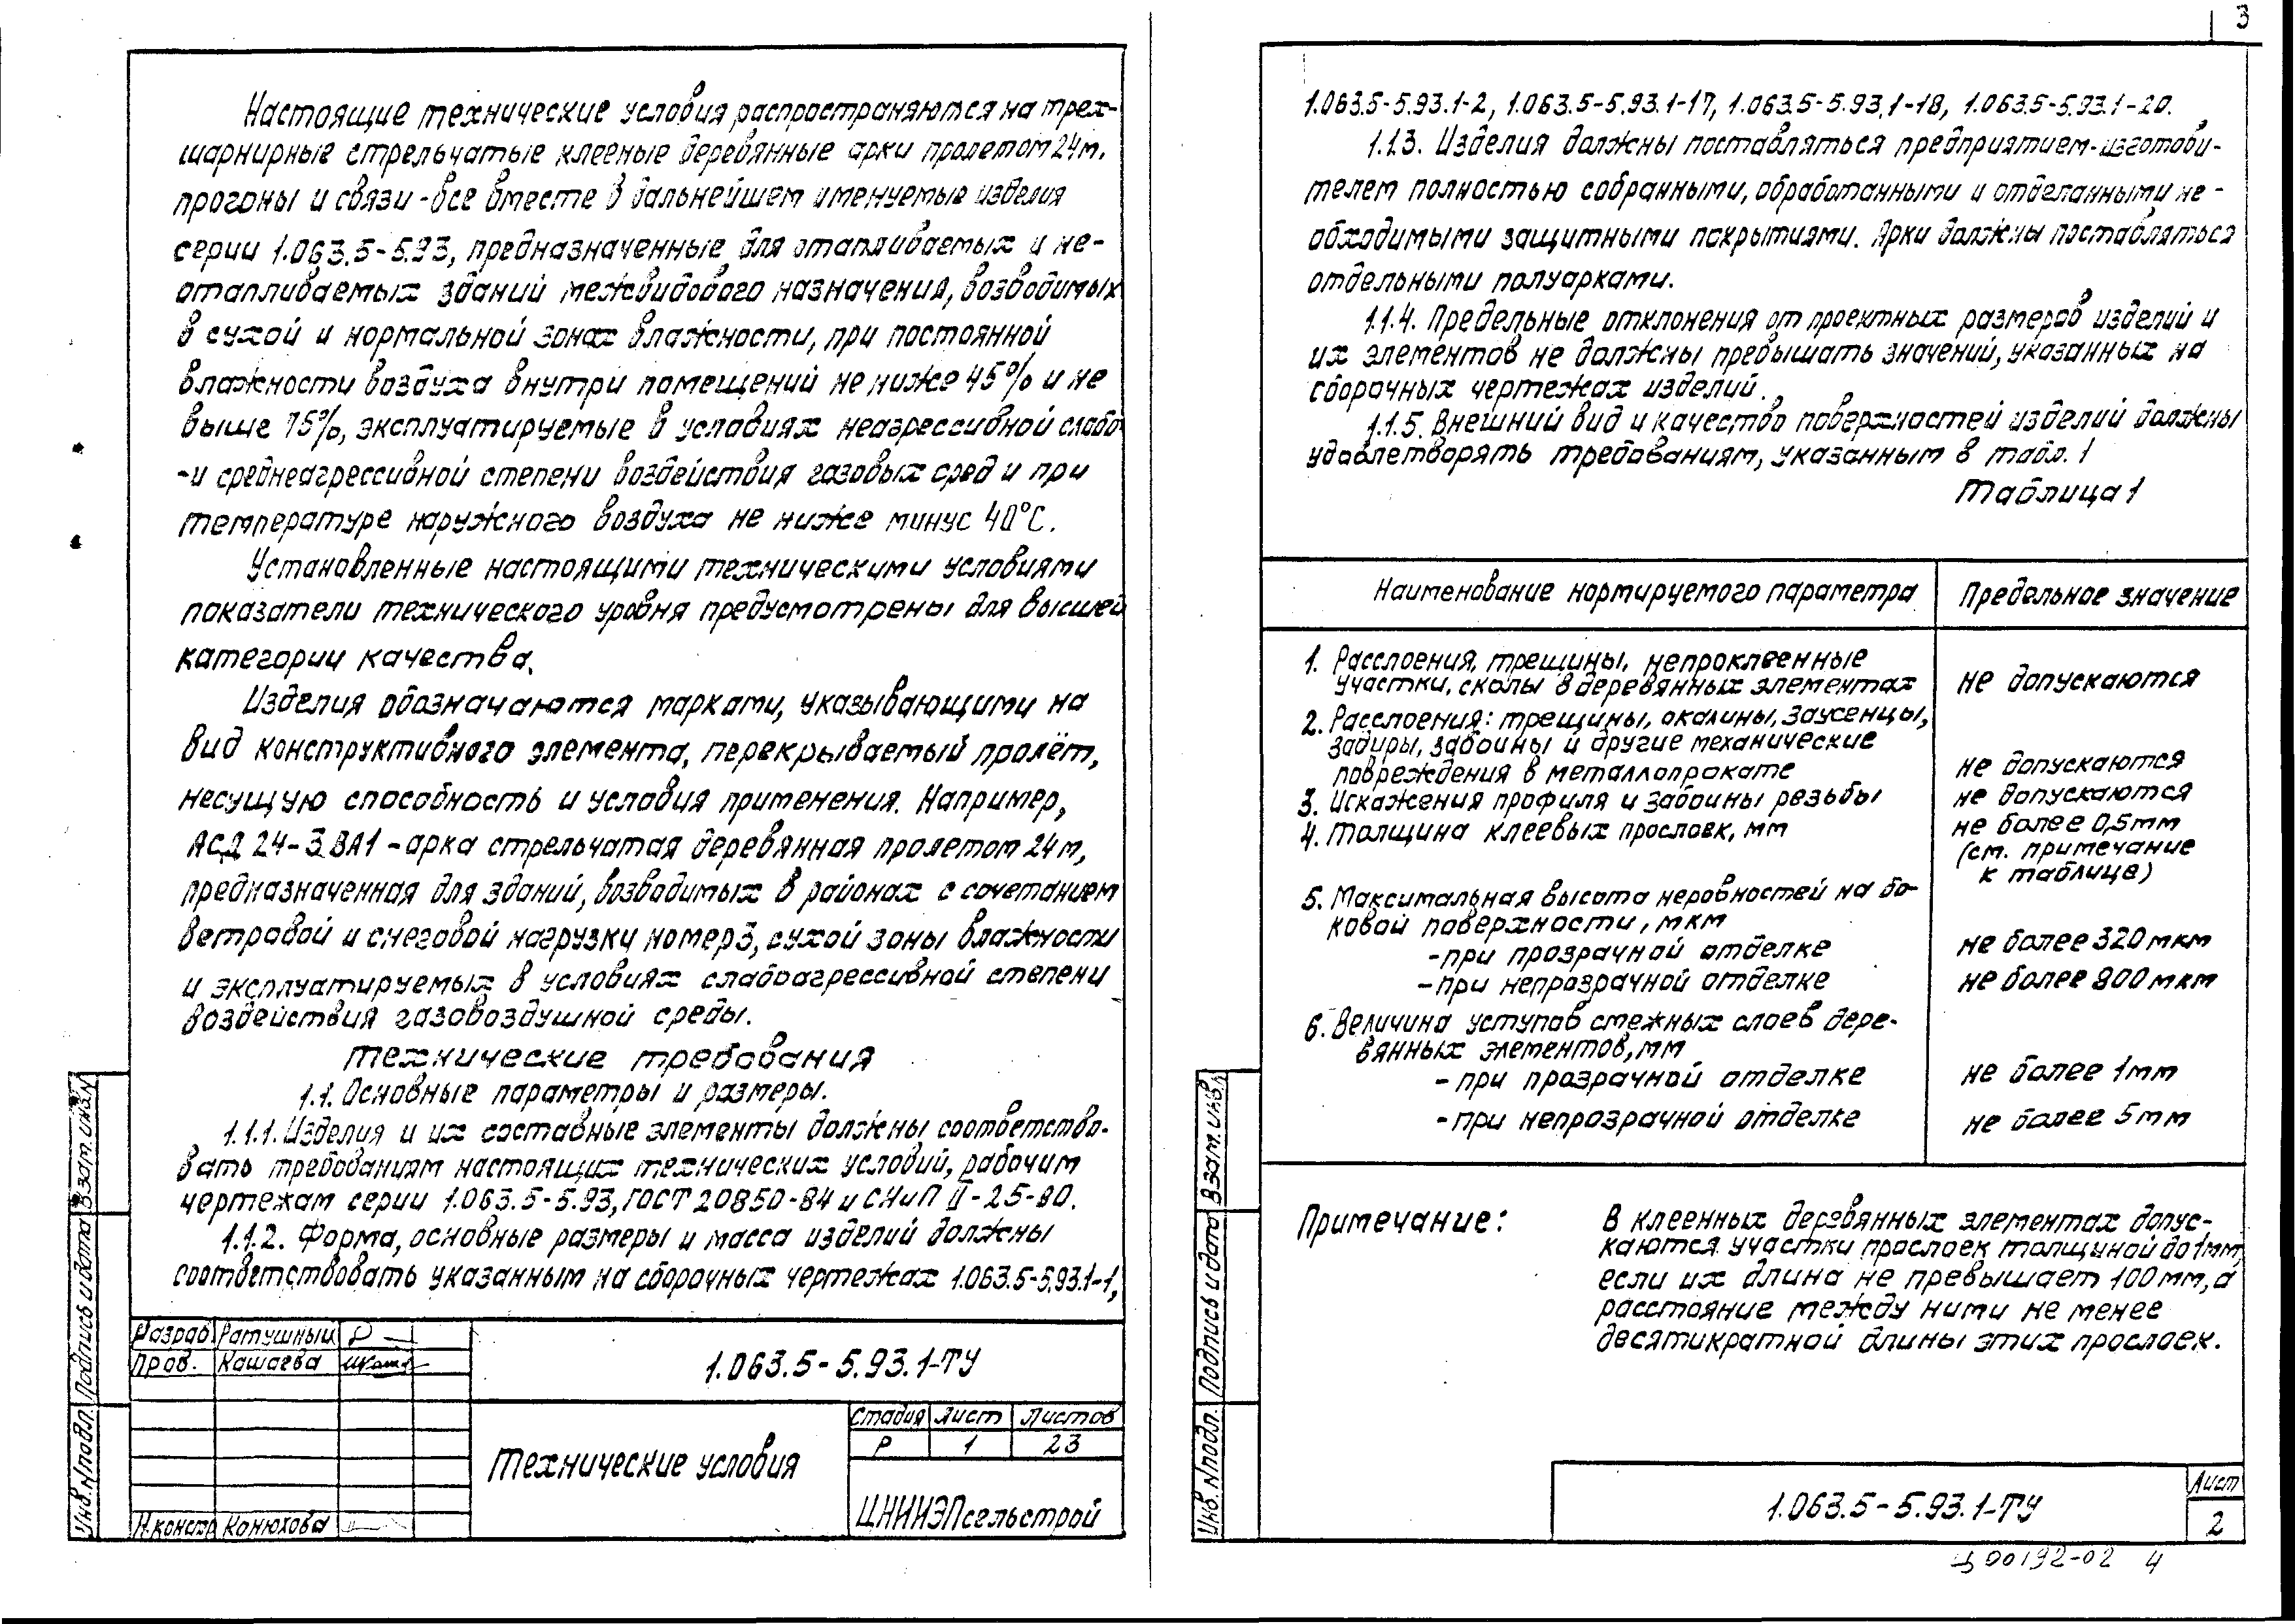 Настоящие технические условия распространяются на трех-
шарнирные стрельчатые клееные деревянные арки пролетом 24м,
прогоны и связи - все вместе в дальнейшем именуемые изделия
серии 1.063.5-5.93, предназначенные для отапливаемых и не-
отапливаемых зданий межвидового назначения, возводимых
в сухой и нормальной зонах влажности, при постоянной
влажности воздуха внутри помещений не ниже 45% и не
выше 75%, эксплуатируемые в условиях неагрессивной слабо
-и среднеагрессивной степени воздействия газовых сред и при
температуре наружного воздуха не ниже минус 40°С.
Установленные настоящими техническими условиями
показатели технического уровня предусмотрены для высшей
категории качества.
Изделия обозначаются марками, указывающими на
вид конструктивного элемента, перекрываемый пролёт,
несущую способность и условия применения. Например,
АСД 24-3.ВА1 - арка стрельчатая деревянная пролетом 24м,
предназначенная для зданий, возводимых в районах с сочетанием
ветровой и снеговой нагрузки номер 3, сухой зоны влажности
и эксплуатируемых в условиях слабоагрессивной степени
воздействия газовоздушной среды.
Технические требования
1.1. Основные параметры и размеры.
1.1.1. Изделия и их составные элементы должны соответство-
вать требованиям настоящих технических условий, рабочим
чертежам серии 1.063.5-5.93, ГОСТ 20850-84 и СНиП II-25-80.
1.1.2. Форма, основные размеры и масса изделий должны
соответствовать указанным на сборочных чертежах 1.063.5-5.93.1-1,
Разраб. Ратушный
Пров. Кашаева
Н.контр Конюхова
1.063.5-5.93.1-ТУ
Технические условия
Стадия Лист Листов
Р 1 23
ЦНИИЭПсельстрой
Взам. инв.N
Подпись и дата
Инв. N подл.
3
1.063.5-5.93.1-2, 1.063.5-5.93.1-17, 1.063.5-5.93.1-18, 1.063.5-5.93.1-20.
1.1.3. Изделия должны поставляться предприятием-изготови-
телем полностью собранными, обработанными и отделанными не-
обходимыми защитными покрытиями. Арки должны поставляться
отдельными полуарками.
1.1.4. Предельные отклонения от проектных размеров изделий и
их элементов не должны превышать значений, указанных на
сборочных чертежах изделий.
1.1.5. Внешний вид и качество поверхностей изделий должны
удовлетворять требованиям, указанным в табл. 1
Таблица 1
Наименование нормируемого параметра Предельное значение
1. Расслоения, трещины, непроклеенные
участки, сколы в деревянных элементах не допускаются
2. Расслоения: трещины, окалины, заусенцы,
задиры, забоины и другие механические
повреждения в металлопрокате не допускаются
3. Искажения профиля и забоины резьбы не допускаются
4. Толщина клеевых прослоек, мм не более 0,5мм
(см. примечание
к таблице)
5. Максимальная высота неровностей на бо-
ковой поверхности, мкм
-при прозрачной отделке не более 320 мкм
-при непрозрачной отделке не более 800 мкм
6. Величина уступов смежных слоев дере-
вянных элементов, мм
-при прозрачной отделке не более 1мм
-при непрозрачной отделке не более 5мм
Примечание: В клеенных деревянных элементах допус-
каются участки прослоек толщиной до 1мм,
если их длина не превышает 100 мм, а
расстояние между ними не менее
десятикратной длины этих прослоек.
Взам. инв.N
Подпись и дата
Инв. N подл.
1.063.5-5.93.1-ТУ
Лист
2
Ц00192-02 4